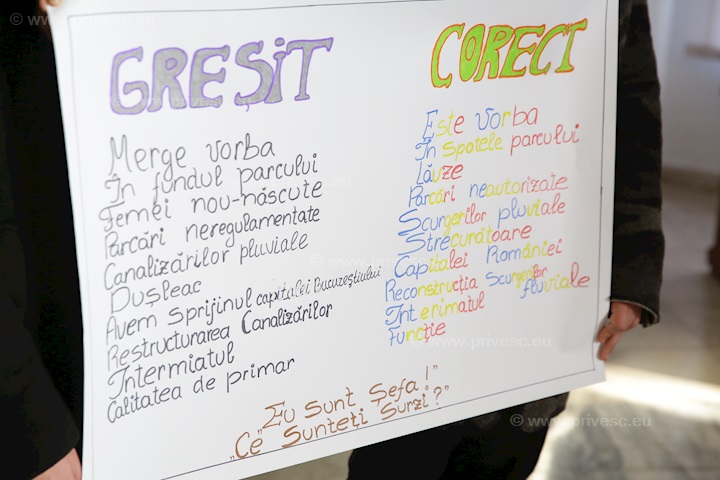 © www.privesc.eu
© www.privesc.eu
GREȘIT
Merge vorba
În fundul parcului
Femei nou-născute
Parcări neregulamentate
Canalizărilor pluviale
Dușleac
Avem sprijinul capitalei Bucureștiului
Restructurarea Canalizărilor
Intermiatul
Calitatea de primar
CORECT
Este vorba
În spatele parcului
Lăuze
Parcări neautorizate
Scurgerilor pluviale
Strecurătoare
Capitalei României
Reconstrucția Scurgerilor fluviale
Interimatul
Funcție
„Eu sunt Șefa!"
„Ce Sunteți Surzi?"
© www.privesc.eu
© www.privesc.eu
© www.privesc.eu